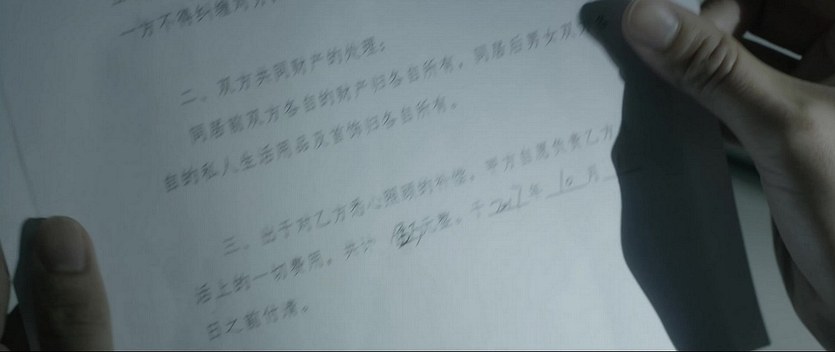 一方不得纠缠对方
二、双方共同财产的处理：
同居前双方各自的财产归各自所有，同居后男女双方各
自的私人生活用品及首饰归各自所有。
三、出于对乙方悉心照顾的补偿，甲方自愿负责乙方
活上的一切费用，共计 元整。于2017年10月
日之前付清。